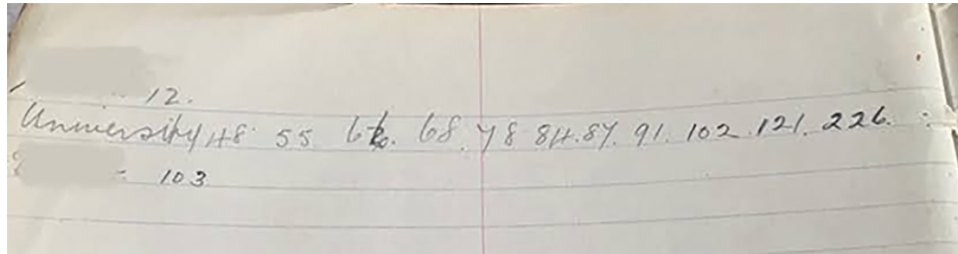 12.
University 48. 55 66. 68. 78 84. 87. 91. 102. 121. 226.
= 103